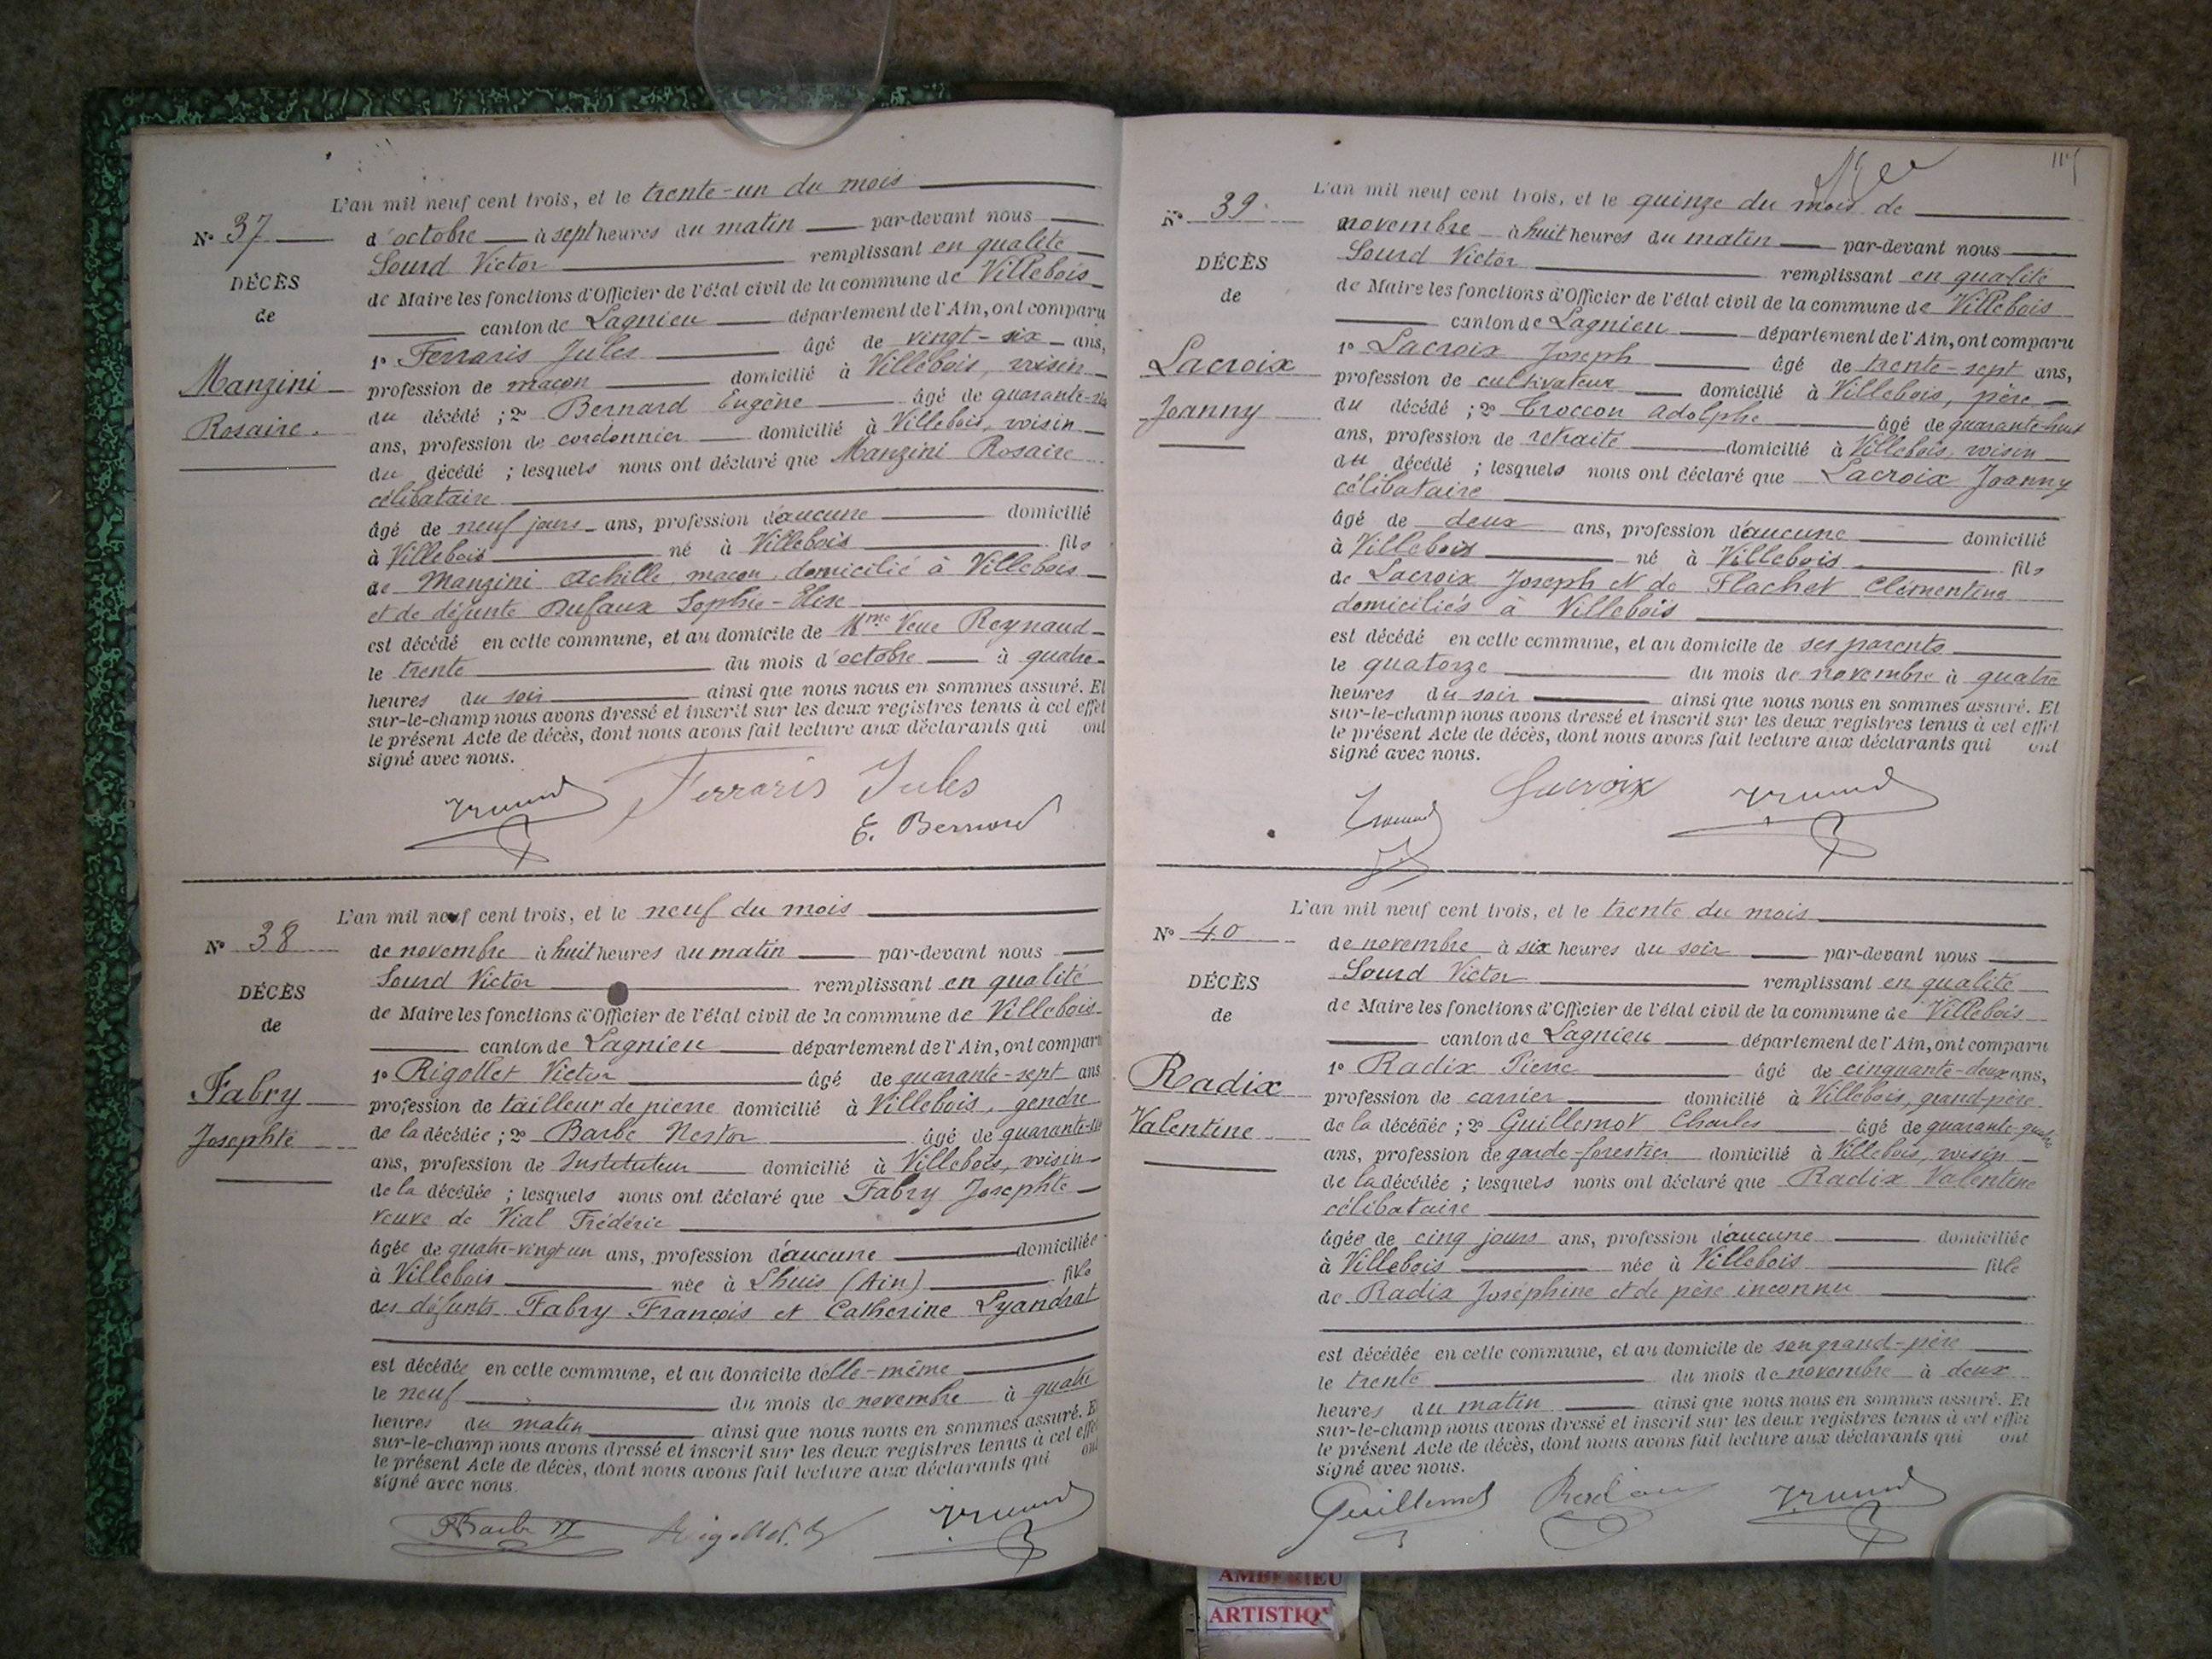 L'an mil neuf cent trois, et le trente-un du mois
N° 37
d'octobre à sept heures du matin par-devant nous
Sourd Victor remplissant en qualité
DÉCÈS
de Maire les fonctions d'Officier de l'état civil de la commune de Villebois
de
canton de Lagnieu département de l'Ain, ont comparu
1° Ferraris Jules âgé de vingt-six ans,
Manzini
profession de maçon domicilié à Villebois, voisin
Rosaire.
du décédé ; 2° Bernard Eugène âgé de quarante-six
ans, profession de cordonnier domicilié à Villebois, voisin
du décédé ; lesquels nous ont déclaré que Manzini Rosaire
célibataire
âgé de neuf jours ans, profession d'aucune domicilié
à Villebois né à Villebois fils
de Manzini Achille, maçon, domicilié à Villebois
et de défunte Dufaux Sophie-Elise
est décédé en cette commune, et au domicile de Mme Veuve Reynaud
le trente du mois d'octobre à quatre
heures du soir ainsi que nous nous en sommes assuré. Et
sur-le-champ nous avons dressé et inscrit sur les deux registres tenus à cet effet
le présent Acte de décès, dont nous avons fait lecture aux déclarants qui ont
signé avec nous.
Ferraris Jules
E. Bernard
L'an mil neuf cent trois, et le neuf du mois
N° 38
de novembre à huit heures du matin par-devant nous
Sourd Victor remplissant en qualité
DÉCÈS
de Maire les fonctions d'Officier de l'état civil de la commune de Villebois
de
canton de Lagnieu département de l'Ain, ont comparu
1° Rigollet Victor âgé de quarante-sept ans
Fabry
profession de tailleur de pierre domicilié à Villebois, gendre
Josephte
de la décédée ; 2° Barbe Nestor âgé de
ans, profession de Instituteur domicilié à Villebois, voisin
de la décédée ; lesquels nous ont déclaré que Fabry Josephte
veuve de Vial Frédéric
âgée de quatre-vingt un ans, profession d'aucune domiciliée
à Villebois née à Lhuis (Ain) fille
des défunts Fabry François et Catherine Lyandrat
est décédée en cette commune, et au domicile delle-même
le neuf du mois de novembre à quatre
heures du matin ainsi que nous nous en sommes assuré. Et
sur-le-champ nous avons dressé et inscrit sur les deux registres tenus à cet effet
le présent Acte de décès, dont nous avons fait lecture aux déclarants qui ont
signé avec nous.
Barbe N Rigollet. V
L'an mil neuf cent trois, et le quinze du mois de
N° 39
novembre à huit heures du matin par-devant nous
Sourd Victor remplissant en qualité
DÉCÈS
de Maire les fonctions d'Officier de l'état civil de la commune de Villebois
de
canton de Lagnieu département de l'Ain, ont comparu
1° Lacroix Joseph âgé de trente-sept ans,
Lacroix
profession de cultivateur domicilié à Villebois, père
Joanny
du décédé ; 2° Croccon Adolphe âgé de quarante-huit
ans, profession de retraité domicilié à Villebois, voisin
du décédé ; lesquels nous ont déclaré que Lacroix Joanny
célibataire
âgé de deux ans, profession d'aucune domicilié
à Villebois né à Villebois fils
de Lacroix Joseph et de Flachet Clémentine
domiciliés à Villebois
est décédé en cette commune, et au domicile de ses parents
le quatorze du mois de novembre à quatre
heures du soir ainsi que nous nous en sommes assuré. Et
sur-le-champ nous avons dressé et inscrit sur les deux registres tenus à cet effet
le présent Acte de décès, dont nous avons fait lecture aux déclarants qui ont
signé avec nous.
Lacroix
L'an mil neuf cent trois, et le trente du mois
N° 40
de novembre à six heures du soir par-devant nous
Sourd Victor remplissant en qualité
DÉCÈS
de Maire les fonctions d'Officier de l'état civil de la commune de Villebois
de
canton de Lagnieu département de l'Ain, ont comparu
1° Radix Pierre âgé de cinquante-deux ans,
Radix
profession de carrier domicilié à Villebois, grand-père
Valentine
de la décédée ; 2° Guillemot Charles âgé de quarante-quatre
ans, profession de garde-forestier domicilié à Villebois, voisin
de la décédée ; lesquels nous ont déclaré que Radix Valentine
célibataire
âgée de cinq jours ans, profession d'aucune domiciliée
à Villebois née à Villebois fille
de Radix Joséphine et de père inconnu
est décédée en cette commune, et au domicile de son grand-père
le trente du mois de novembre à deux
heures du matin ainsi que nous nous en sommes assuré. Et
sur-le-champ nous avons dressé et inscrit sur les deux registres tenus à cet effet
le présent Acte de décès, dont nous avons fait lecture aux déclarants qui ont
signé avec nous.
Guillemot
AMBERIEU
ARTISTIQ